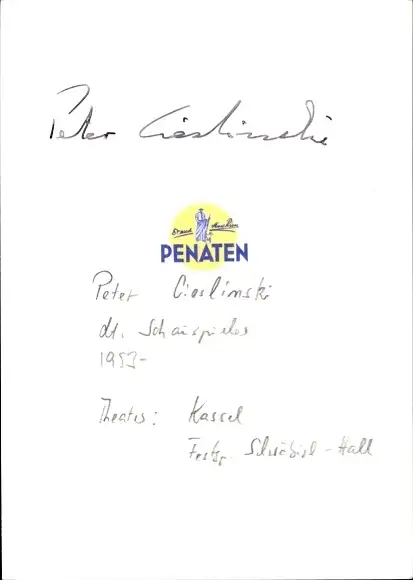 Peter Cieslinski
PENATEN
Peter Cieslinski
dt. Schauspieler
1953-
Theater: Kassel
Festsp. Schwäbisch-Hall